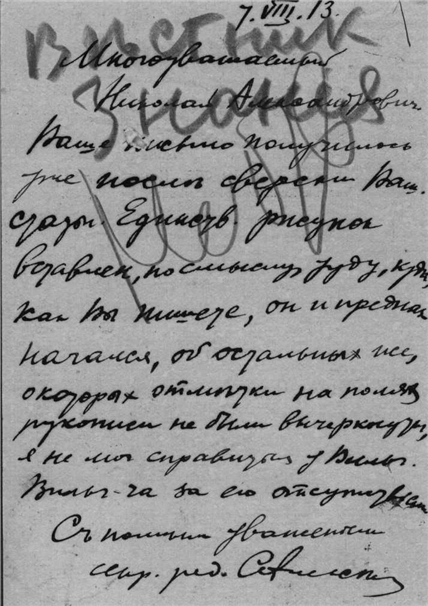 7.VIII.13.
Вѣстник
Знания
Многоуважаемый
Николай Александрович
Ваше письмо получилось
уже после сверски Ваш.
статьи. Единств. рисунок
вставлен, по смыслу, туда, куда,
как Вы пишете, он и предназ
начался, об остальных же,
о которых отметки на полях
рукописи не были вычеркнуты,
я не мог справиться у Вильг.
Вильг-ча за его отсутствием
Съ полным уважением
секр. ред.